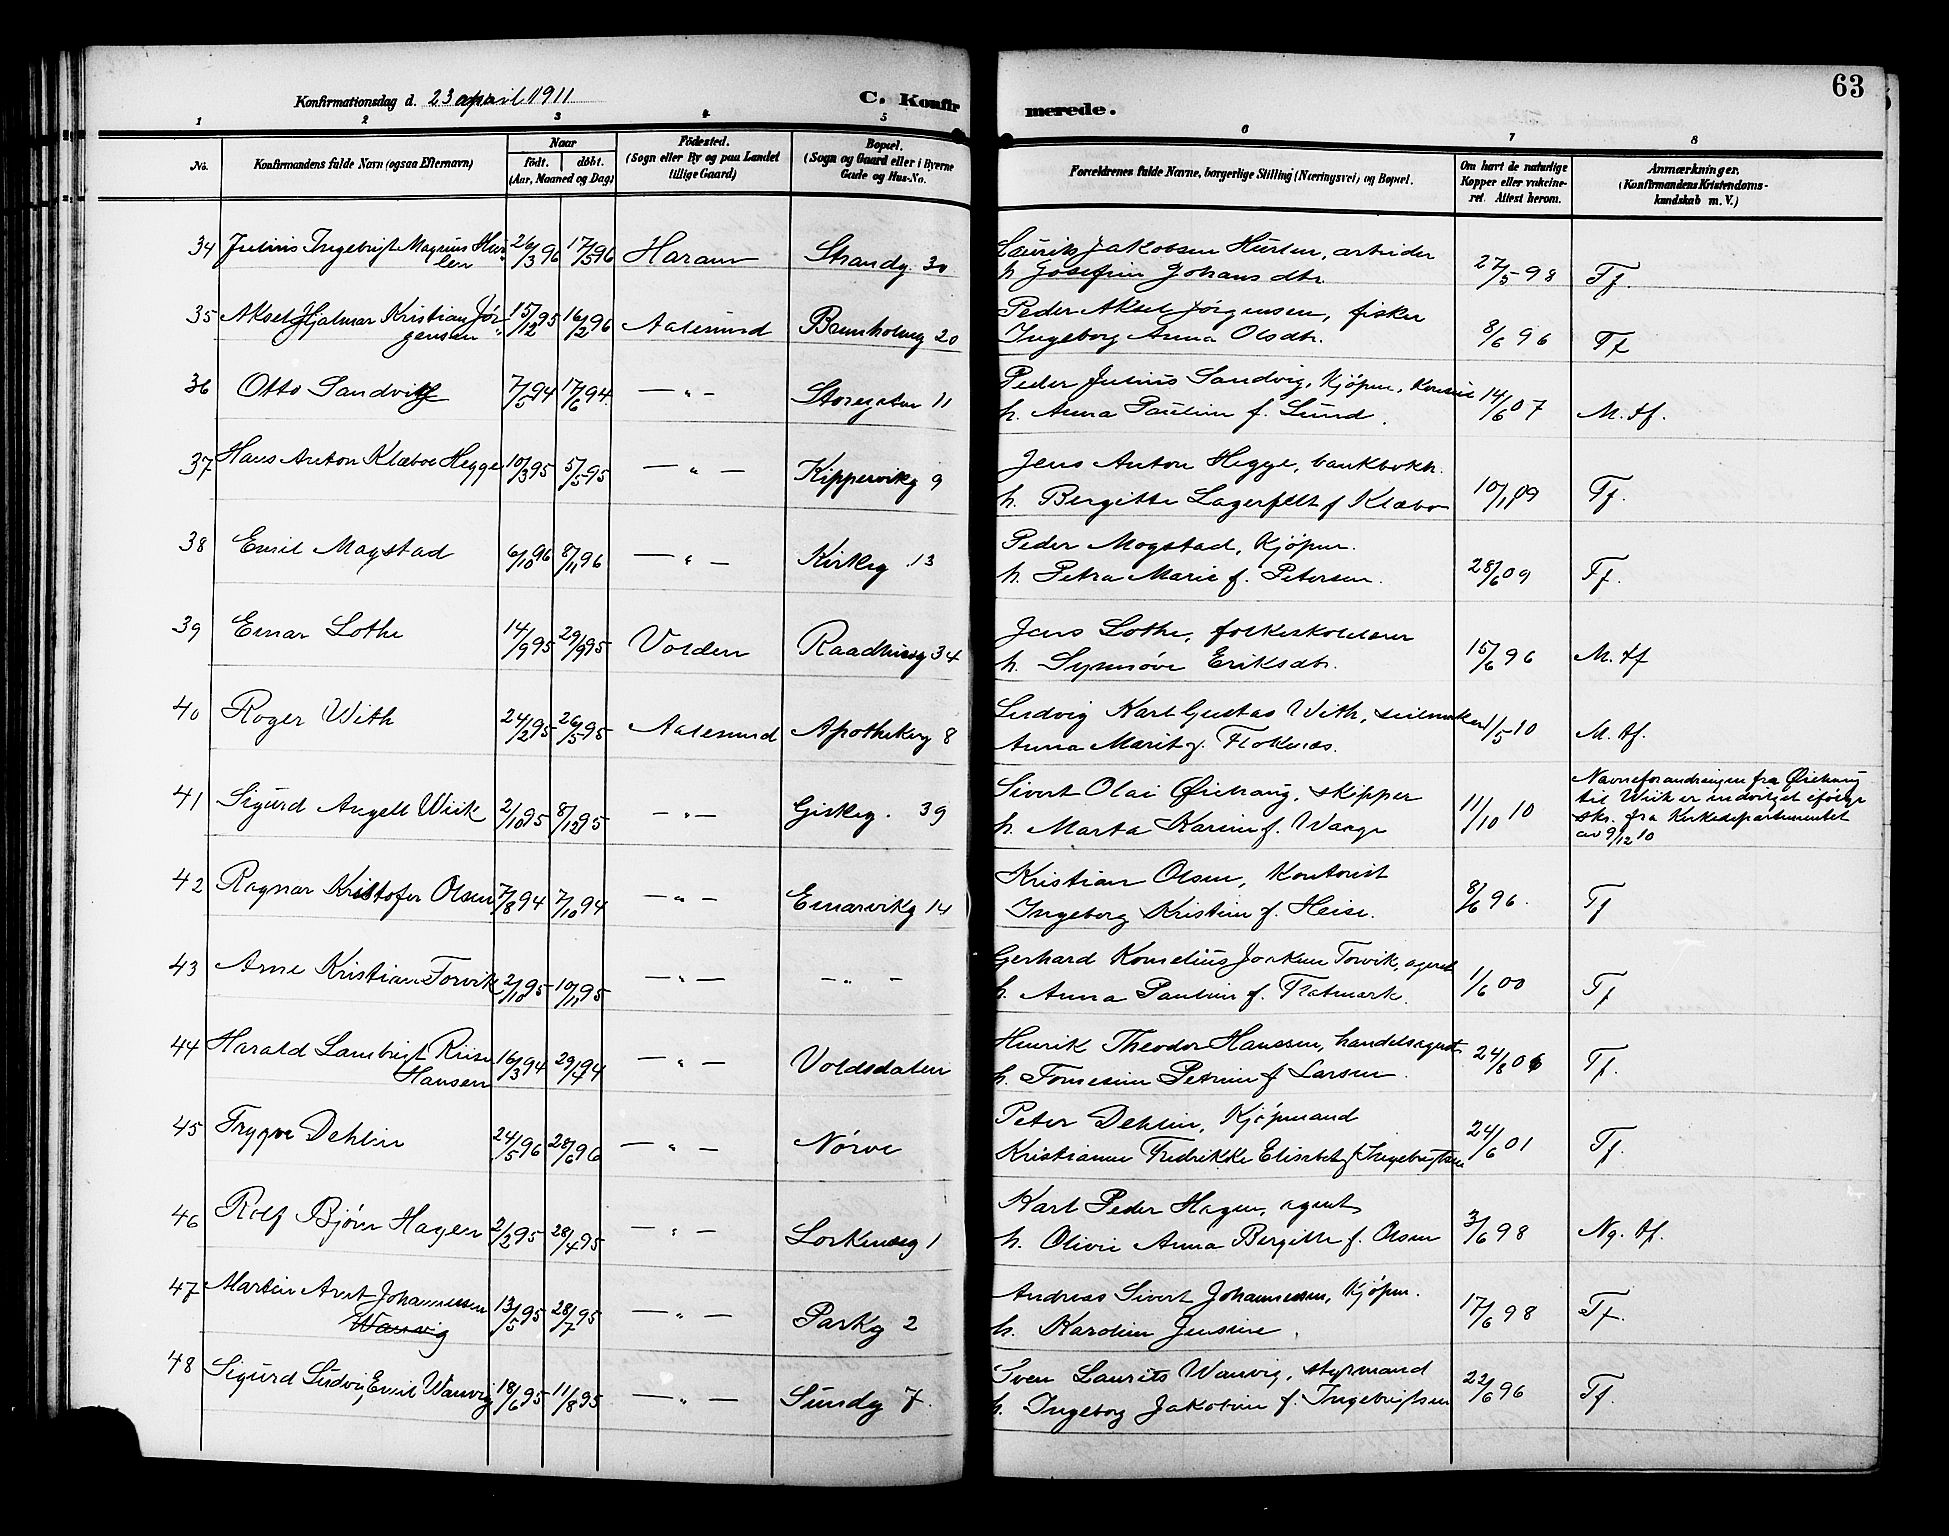 63
Konfirmationsdag d. 23 april 1911
C. Konfir merede.
1 2 3 4 5 6 7 8
No. Konfirmandens fulde Navn (ogsaa Efternavn) Naar födt. döbt. (Aar, Maaned og Dag) Födested. (Sogn eller By og paa Landet tillige Gaard) Bopæl. (Sogn og Gaard eller i Byerne Gade og Hus-No. Forældrenes fulde Navne, borgerlige Stilling (Næringsvei) og Bopæl. Om havt de naturlige Kopper eller vakcineret. Attest herom. Anmærkninger. (Konfirmandens Kristendomskundskab m. V.)
34 Julius Ingebrigt Magnus Hurlen 26/3 96 17/5 96 Haram Strandg. 30 Laurits Jakobsen Hurlen, arbeider
h. Josefine Johansdtr. 27/5 98 Tf.
35 Aksel Hjalmar Kristian Jørgensen 15/12 95 16/2 96 Aalesund Brunholmg 20 Peder Aksel Jørgensen, fisker
Ingeborg Anna Olsdtr. 8/6 96 Tf
36 Otto Sandvig 7/5 94 17/6 94. — " — Storegaten 11 Peder Julius Sandvig, Kjøpm., Konsul
h. Anna Pauline f. Lund. 14/6 07 M. tf.
37 Hans Anton Klæboe Hegge 10/3 95 5/5 95 — " — Kippervikg 9 Jens Anton Hegge, bankbokh.
h. Bergitte Lagerfelt f Klæbo 10/1 09 Tf.
38 Emil Mogstad 6/10 96 8/11 96 — " — Kirkeg. 13 Peder Mogstad, Kjøpm.
h. Petra Marie f. Petersen. 28/6 09 Tf.
39 Einar Lothe 14/9 95 29/9 95 Volden Raadhusg 34 Jens Lothe, folkeskolelærer
h. Synnøve Eriksdtr. 15/6 96 M. tf
40 Roger With 24/2 95 26/5 95 Aalesund Apothekerg 8 Ludvig Karl Gustav With, seilmaker
Anna Marit f. Floknes. 1/5 10 M. tf.
41 Sigurd Angell Wiik 2/10 95 8/12 95 — " — Giskeg. 39 Sivert Olai Øiehaug, skipper
h. Marta Karine f. Waage 11/10 10 Navneforandringen fra Øiehaug
til Wiik er indvilget ifølge
skr. fra Kirkedepartementet
av 9/12 10
42 Ragnar Kristofer Olsen 7/8 94 7/10 94 — " — Einarvikg 14 Kristian Olsen, Kontorist
Ingeborg Kristine f. Heise. 8/6 96. Tf
43 Arne Kristian Torvik 2/10 95 10/11 95 — " — — " — Gerhard Kornelius Joakim Torvik, agent
h. Anna Pauline f. Flatmark. 1/6 00 Tf
44 Harald Lambrigt Riise Hansen 16/3 94 29/4 94 — " — Voldsdalen Henrik Theodor Hansen, handelsagent
h. Tomesine Petrine f Larsen. 24/6 06 Tf.
45 Trygve Dehlin 24/5 96 28/6 96 — " — Nørve Peter Dehlin, Kjøpmand
Kristianne Fredrikke Elisabet f. Ingebrigtsen 24/6 01 Tf.
46 Rolf Bjørn Hagen 2/2 95 28/4 95 — " — Lorkenesg 1 Karl Peder Hagen, agent
h. Olivie Anna Bergitte f. Olsen 3/6 98 Ng. tf.
47 Martin Arnt Johannessen Wanvig 13/5 95 28/7 95 — " — Parkg 2 Andreas Sivert Johannessen, Kjøpm.
h. Karoline Jensine. 17/6 98 Tf.
48 Sigurd Ludvig Emil Wanvig 18/6 95 11/8 95 — " — Sundg 7. Sven Laurits Wanvig, styrmand
h. Ingeborg Jakobine f. Ingebrigtsen 22/6 96 Tf.